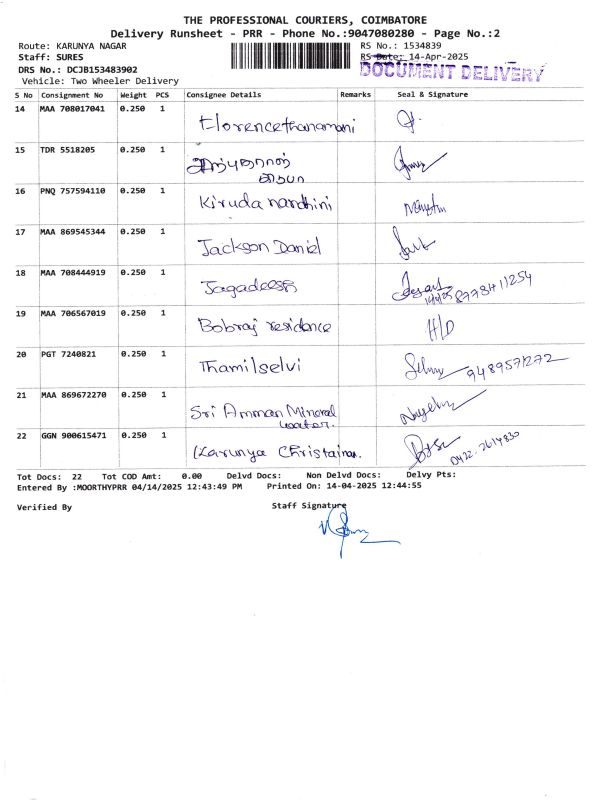 THE PROFESSIONAL COURIERS, COIMBATORE
Delivery Runsheet - PRR - Phone No.:9047080280 - Page No.:2
Route: KARUNYA NAGAR RS No.: 1534839
Staff: SURES RS Date: 14-Apr-2025
DRS No.: DCJB153483902 DOCUMENT DELIVERY
Vehicle: Two Wheeler Delivery
S No Consignment No Weight PCS Consignee Details Remarks Seal & Signature
14 MAA 708017041 0.250 1 Florencethanamani
15 TDR 5518205 0.250 1
16 PNQ 757594110 0.250 1 Kiruda nandhini
17 MAA 869545344 0.250 1 Jackson Daniel
18 MAA 708444919 0.250 1 Jagadeesh
19 MAA 706567019 0.250 1 Bobraj residence H/D
20 PGT 7240821 0.250 1 Thamilselvi 9489571272
21 MAA 869672270 0.250 1 Sri Amman Mineral
water.
22 GGN 900615471 0.250 1 Karunya Christain 0422. 2614830
Tot Docs: 22 Tot COD Amt: 0.00 Delvd Docs: Non Delvd Docs: Delvy Pts:
Entered By :MOORTHYPRR 04/14/2025 12:43:49 PM Printed On: 14-04-2025 12:44:55
Verified By Staff Signature